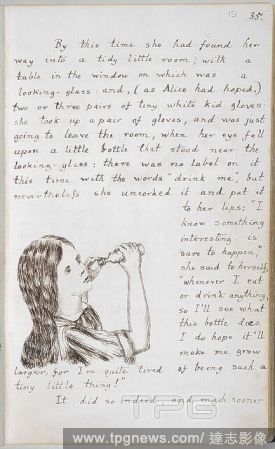 19 35.
By this time she had found her
way into a tidy little room, with a
table in the window on which was a
looking-glass and, (as Alice had hoped,)
two or three pairs of tiny white kid gloves:
she took up a pair of gloves, and was just
going to leave the room, when her eye fell
upon a little bottle that stood near the
looking-glass: there was no label on it
this time with the words "drink me," but
nevertheless she uncorked it and put it
to her lips: "I
know something
interesting is
sure to happen,"
she said to herself,
"whenever I eat
or drink anything,
so I'll see what
this bottle does.
I do hope it'll
make me grow
larger, for I'm quite tired of being such a
tiny little thing!"
It did so indeed, and much sooner
TPG
www.tpgnews.com/達志影像